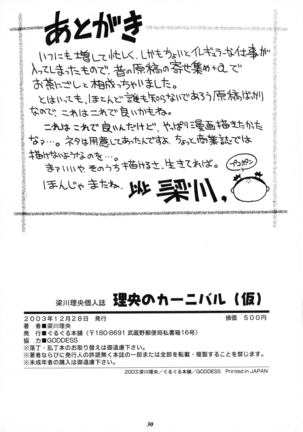 あとがき
いつにも増して忙しく、しかもちょいとイレギュラーな仕事が
入ってしまったもので、昔の原稿の寄せ集め+αで
お茶にごしと相成っちゃいました。
とはいっても、ほとんど誰も知らないであろう原稿ばかり
なので、これはこれで良いかもね。
これはこれで良いんだけど、やっぱり漫画描きたかた
なァ…。ネタは用意してあったんですよ、ちょっと商業誌では
描けないようなのを…。
まァいいやそのうち描けるさ、生きてれば。
ほんじゃまたね。
梁川理央個人誌 理央のカーニバル(仮)
2003年12月28日 発行 頒価 500円
著 者■梁川理央
発 行■ぐるぐる本舗(〒180-8691 武蔵野郵便局私書箱16号)
協 力■GODDESS
※落丁・乱丁本のお取り替えは御遠慮下さい。
※著者ならびに発行人の許諾無く本誌の一部または全部を転載・複製することを禁じます。
※未成年者の購入は御遠慮下さい。
2003 梁川理央/ぐるぐる本舗/GODDESS Printed in JAPAN
30